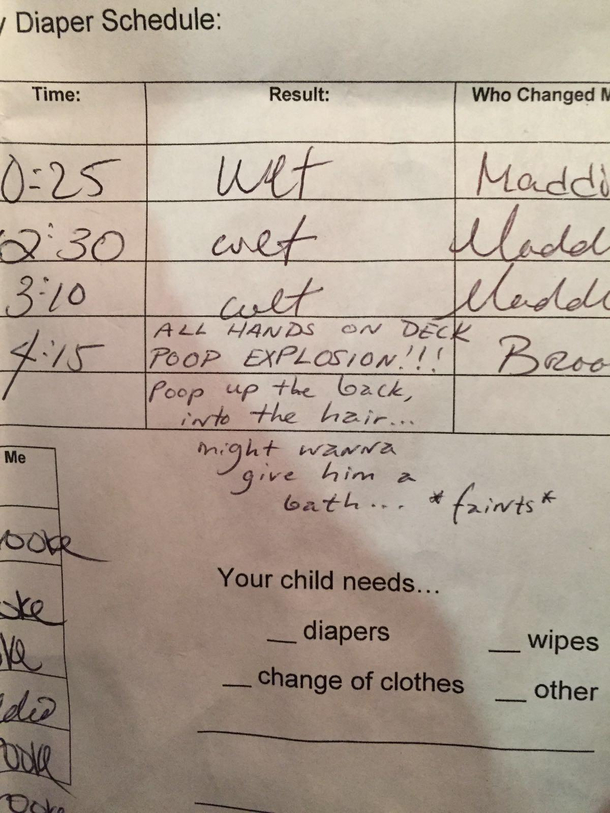 y Diaper Schedule:
Time: Result: Who Changed M
0:25 wet Maddi
2:30 wet Madd
3:10 wet Madd
4:15 ALL HANDS ON DECK
POOP EXPLOSION!!! Broo
Poop up the back,
into the hair...
might wanna
give him a
bath... *faints*
Me
ooke
oke
ke
ooke
ooke
Your child needs...
__ diapers __ wipes
__ change of clothes __ other